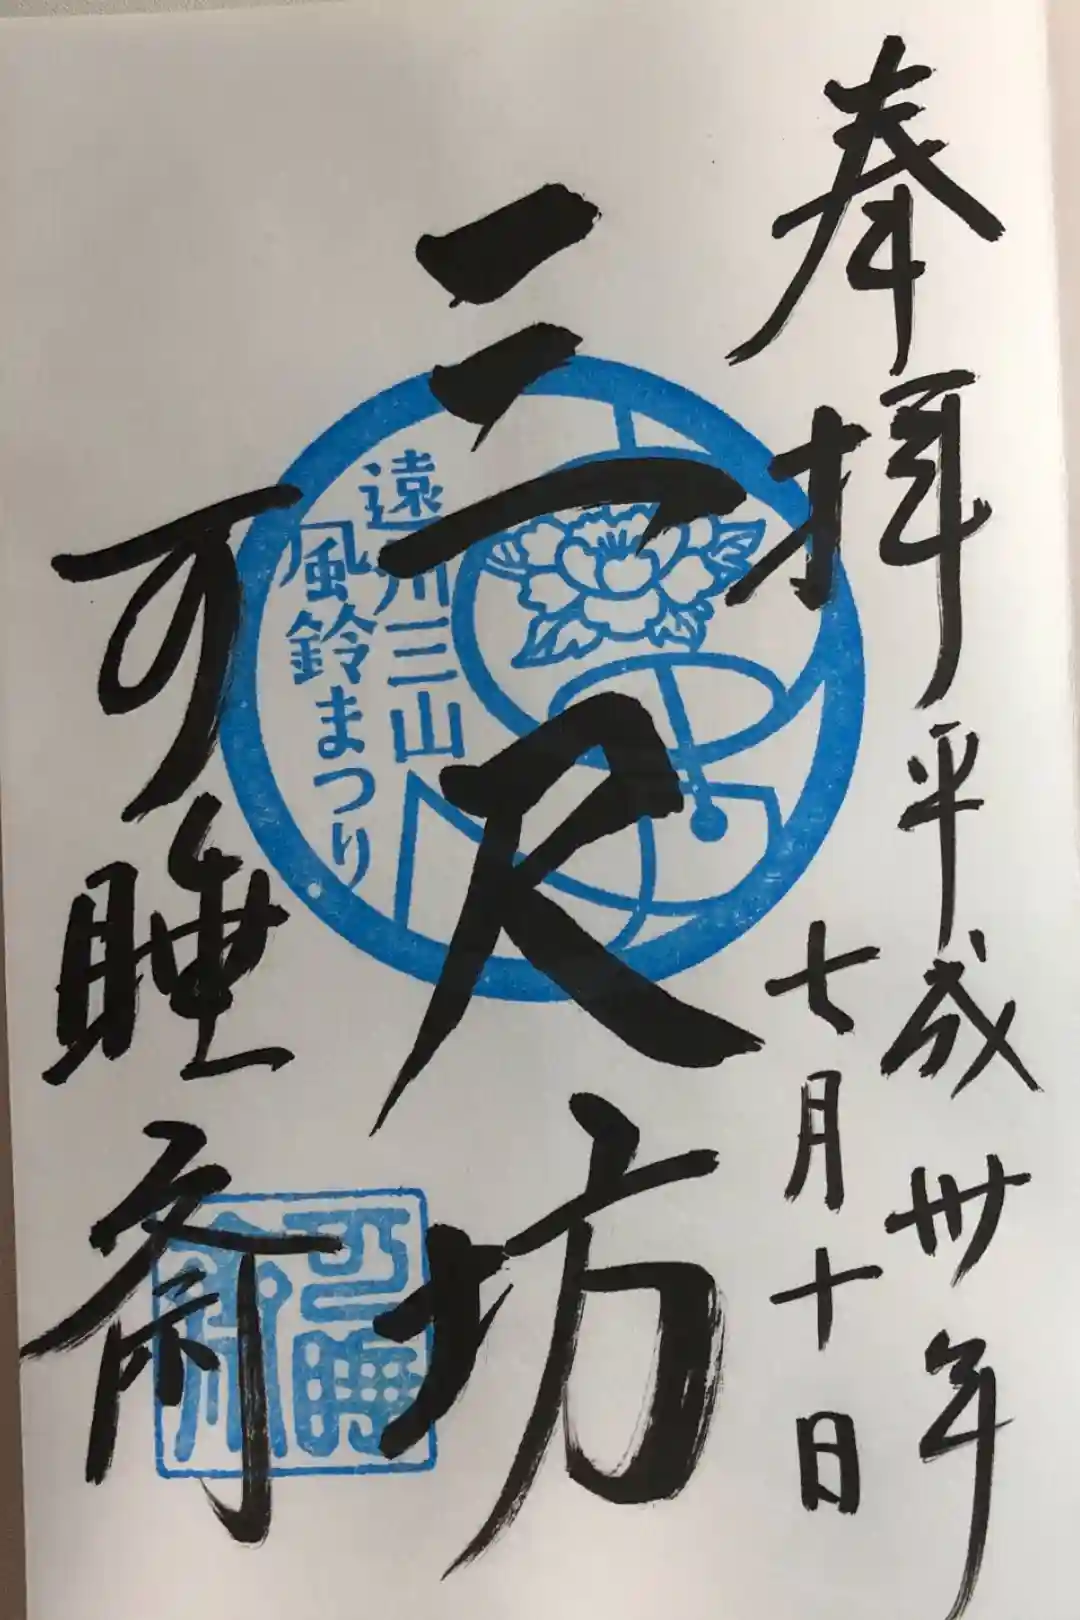 奉拝
平成卅年
七月十日
三尺坊
遠州三山
風鈴まつり
可睡斎
可睡
斎